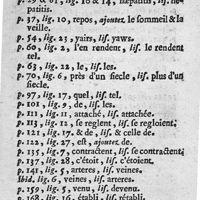 p. 29 & 61, lig. 16 & 14, hæpatitis, lis. hé-
patitis.
p. 37, lig. 10, repos, ajoutez le sommeil & la
veille.
p. 54, lig. 23, yairs, lis. yaws.
p. 60, lig. 2, l'en rendent, lis. le rendent
tel.
p. 63, lig. 22, le, lis. les.
p. 70, lig. 6, près d'un siecle, lis. plus d'un
siecle.
p. 97, lig. 17, quel, lis. tel.
p. 101, lig. 9, de, lis. les.
p. 111, lig. 11, attaché, lis. attachée.
p. 113, lig. 12, se reglent, lis. se regloient.
p. 121, lig. 17. & de, lis. & celle de.
p. 122, lig. 27, est, ajoutez de.
p. 135, lig. 7, contractent, lis. se contractent.
p. 137, lig. 28, c'étoit, lis. c'étoient.
p. 141, lig. 5, arteres, lis. veines.
Ibid. lig. 6, veines, lis. arteres.
p. 159, lig. 5, venu, lis. devenu.
p. 168, lig. 16, établi, lis. rétabli.